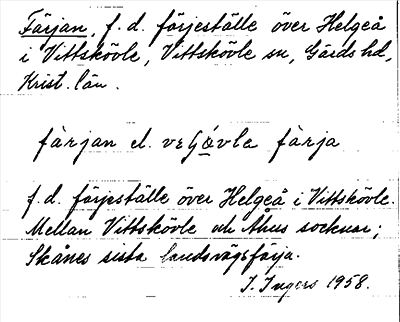 Färjan, f.d. färjeställe över Helgeå
i Vittskövle, Vittskövle sn, Gärds hd,
Krist. län.
färjan el. veʃǿvle färja
f.d. färjeställe över Helgeå i Vittskövle.
Mellan Vittskövle och Åhus socknar;
Skånes sista landsvägsfärja.
I. Ingers 1958.